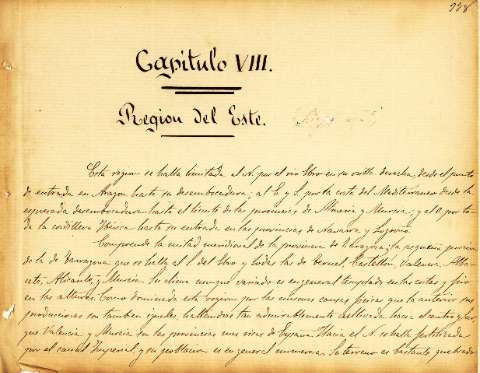 Capitulo VIII.
Region del Este.
Esta region se halla limitada al N. por el rio Ebro en su orilla derecha, desde el punto
de entrada en Aragon hasta su desembocadura; al E. y S. por la costa del Mediterraneo desde la
espresada desembocadura hasta el limite de las provincias de Almeria y Murcia; y al O. por to-
da la cordillera Iberica hasta su entrada en las provincias de Navarra y Logroño
Comprende la mitad meridional de la provincia de Zaragoza; la pequeña porcion
de la de Tarragona que se halla al S. del Ebro y todas las de Teruel, Castellon, Valencia, Alba-
cete, Alicante, y Murcia. Su clima aunque variado es en general templado en las costas y frio
en las alturas. Como dominada esta region por las mismas causas fisicas que la anterior sus
producciones son tambien iguales, hallandose tan admirablemente cultivada
que Valencia y Murcia son las provincias mas ricas de España. Hacia el N. se halla fertilizada
por el canal Imperial, y su poblacion es en general numerosa. Su terreno es bastante quebrado